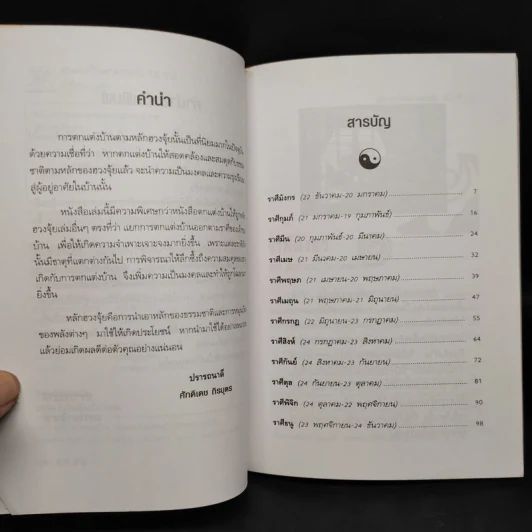 คำนำ
การตกแต่งบ้านตามหลักฮวงจุ้ยนั้นเป็นที่นิยมมากในปัจจุบัน
ด้วยความเชื่อที่ว่า หากตกแต่งบ้านให้สอดคล้องและสมดุลกับธรรม
ชาติตามหลักของฮวงจุ้ยแล้ว จะนำความเป็นมงคลและความรุ่งเรือง
สู่ผู้อยู่อาศัยในบ้านนั้น
หนังสือเล่มนี้มีความพิเศษกว่าหนังสือตกแต่งบ้านให้ถูกหลัก
ฮวงจุ้ยเล่มอื่นๆ ตรงที่ว่า แยกการตกแต่งบ้านออกตามราศีของเจ้าของ
บ้าน เพื่อให้เกิดความจำเพาะเจาะจงมากยิ่งขึ้น เพราะแต่ละราศี
นั้นมีธาตุที่แตกต่างกันไป การพิจารณาให้ลึกซึ้งถึงความสมดุล
เกิดกับการตกแต่งบ้าน จึงเพิ่มความเป็นมงคลและทำให้
ยิ่งขึ้น
หลักฮวงจุ้ยคือการนำเอาหลักของธรรมชาติและการหมุนเวียน
ของพลังต่างๆ มาใช้ให้เกิดประโยชน์ หากนำมาใช้ได้อย่าง
แล้วย่อมเกิดผลดีต่อตัวคุณอย่างแน่นอน
ปรารถนาดี
ศักดิเดช ถิรบุตร
สารบัญ
ราศีมังกร (22 ธันวาคม-20 มกราคม) 7
ราศีกุมภ์ (21 มกราคม-19 กุมภาพันธ์) 16
ราศีมีน (20 กุมภาพันธ์-20 มีนาคม) 24
ราศีเมษ (21 มีนาคม-20 เมษายน) 32
ราศีพฤษภ (21 เมษายน-20 พฤษภาคม) 39
ราศีเมถุน (21 พฤษภาคม-21 มิถุนายน) 47
ราศีกรกฎ (22 มิถุนายน-23 กรกฎาคม) 55
ราศีสิงห์ (24 กรกฎาคม-23 สิงหาคม) 64
ราศีกันย์ (24 สิงหาคม-23 กันยายน) 72
ราศีตุล (24 กันยายน-23 ตุลาคม) 81
ราศีพิจิก (24 ตุลาคม-22 พฤศจิกายน) 90
ราศีธนู (23 พฤศจิกายน-24 ธันวาคม) 98